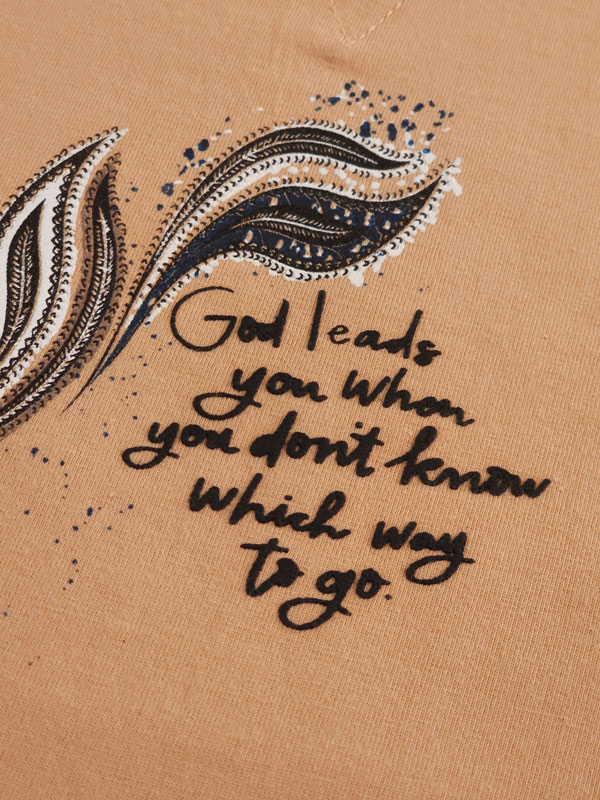 God leads
you when
you don't know
which way
to go.